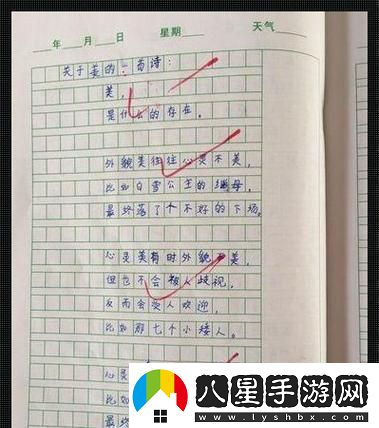 年 月 日 星期 天气
关于美的一首诗:
美,
是什么的存在。
外貌美往往心灵不美,
比如白雪公主的继母,
最终落了个不好的下场。
心灵美有时外貌不美,
但也不会被人歧视,
反而会受人欢迎,
比如那七个小矮人。
心灵
比如
最终
八星手游网
www.lyshbx.com